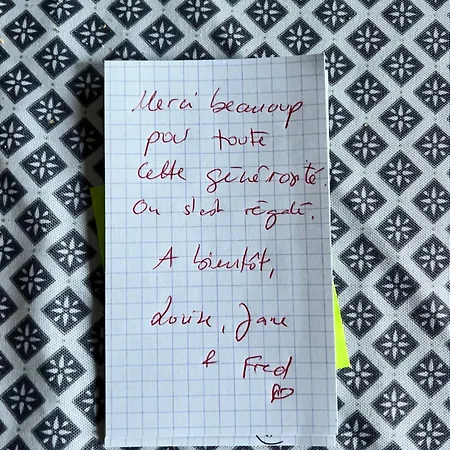 Merci beaucoup
pour toute
cette générosité.
On s'est régalé.
A bientôt,
Louise, Jane
& Fred